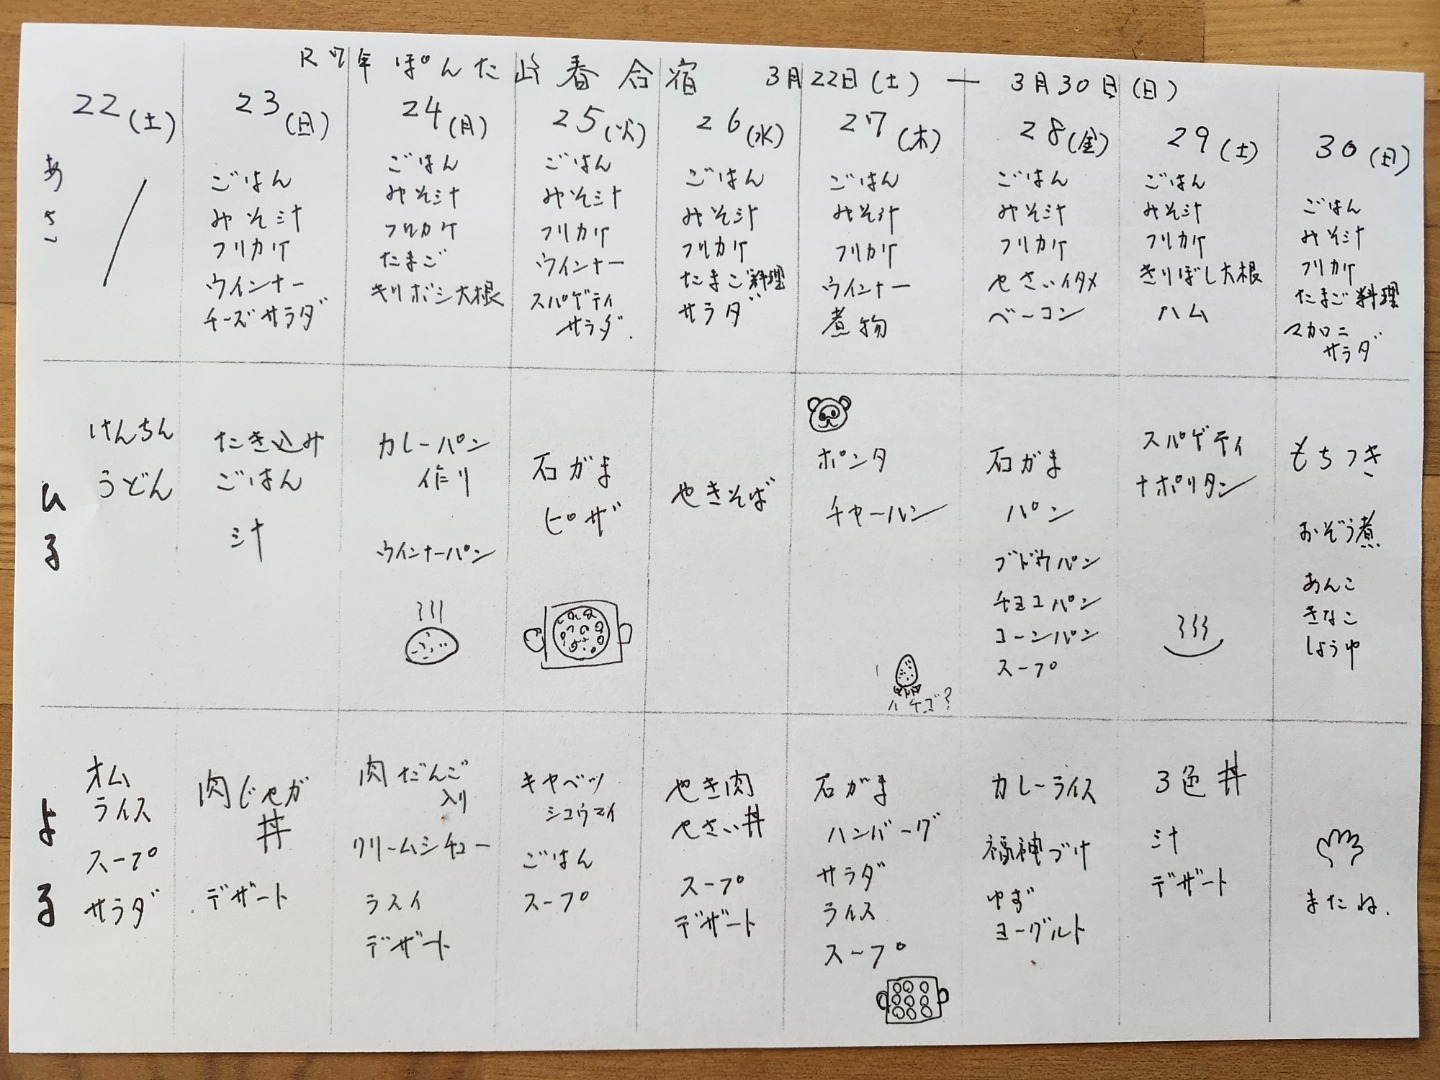 R7年 ぽんた山春合宿 3月22日(土) ー 3月30日(日)
22(土)
23(日)
24(月)
25(火)
26(水)
27(木)
28(金)
29(土)
30(日)
あさ
ごはん
みそ汁
フリカケ
ウインナー
チーズサラダ
ごはん
みそ汁
フリカケ
たまご
きりボシ大根
ごはん
みそ汁
フリカケ
ウインナー
スパゲティ
サラダ.
ごはん
みそ汁
フリカケ
たまご料理
サラダ
ごはん
みそ汁
フリカケ
ウインナー
煮物
ごはん
みそ汁
フリカケ
やさいイタメ
ベーコン
ごはん
みそ汁
フリカケ
きりぼし大根
ハム
ごはん
みそ汁
フリカケ
たまご料理
マカロニ
サラダ
ひる
けんちん
うどん
たき込み
ごはん
汁
カレーパン
作り
ウインナーパン
石がま
ピザ
やきそば
ポンタ
チャーハン
ハケゴ?
石がま
パン
ブドウパン
チョコパン
コーンパン
スープ
スパゲティ
ナポリタン
もちつき
おぞう煮
あんこ
きなこ
しょうゆ
よる
オム
ライス
スープ
サラダ
肉じゃが
丼
デザート
肉だんご
入り
クリームシチュー
ラスイ
デザート
キャベツ
シュウマイ
ごはん
スープ
やき肉
やさい丼
スープ
デザート
石がま
ハンバーグ
サラダ
ライス
スープ
カレーライス
福神づけ
ゆず
ヨーグルト
3色丼
汁
デザート
またね.